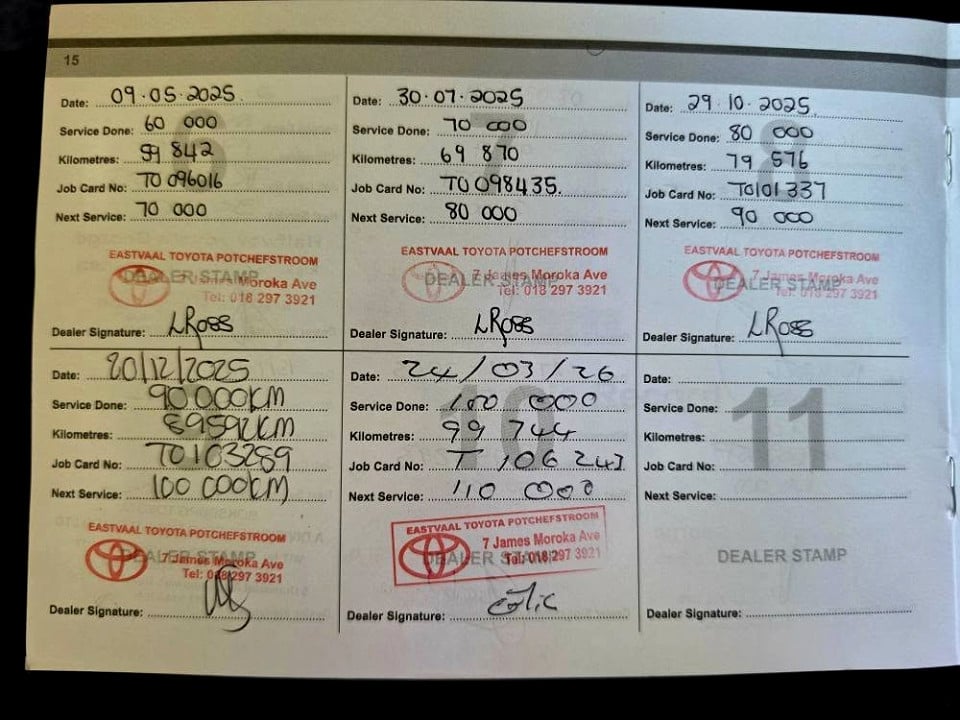 15
Date: 09.05.2025.
Service Done: 60 000
Kilometres: 59 842
Job Card No: TO 096016
Next Service: 70 000
EASTVAAL TOYOTA POTCHEFSTROOM
DEALER STAMP
7 James Moroka Ave
Tel: 018 297 3921
Dealer Signature: LRoss
7
Date: 30.07.2025
Service Done: 70 000
Kilometres: 69 870
Job Card No: TO 098435.
Next Service: 80 000
EASTVAAL TOYOTA POTCHEFSTROOM
DEALER STAMP
7 James Moroka Ave
Tel: 018 297 3921
Dealer Signature: LRoss
8
Date: 29.10.2025
Service Done: 80 000
Kilometres: 79 576
Job Card No: TO101337
Next Service: 90 000
EASTVAAL TOYOTA POTCHEFSTROOM
DEALER STAMP
7 James Moroka Ave
Tel: 018 297 3921
Dealer Signature: LRoss
Date: 20/12/2025
Service Done: 90 000KM
Kilometres:
Job Card No: TO103289
Next Service: 100 000KM
EASTVAAL TOYOTA POTCHEFSTROOM
DEALER STAMP
7 James Moroka Ave
Tel: 018 297 3921
Dealer Signature:
10
Date: 24/03/26
Service Done: 100 000
Kilometres: 99 744
Job Card No: T 106243
Next Service: 110 000
EASTVAAL TOYOTA POTCHEFSTROOM
DEALER STAMP
7 James Moroka Ave
Tel: 018 297 3921
Dealer Signature:
11
Date:
Service Done:
Kilometres:
Job Card No:
Next Service:
DEALER STAMP
Dealer Signature: